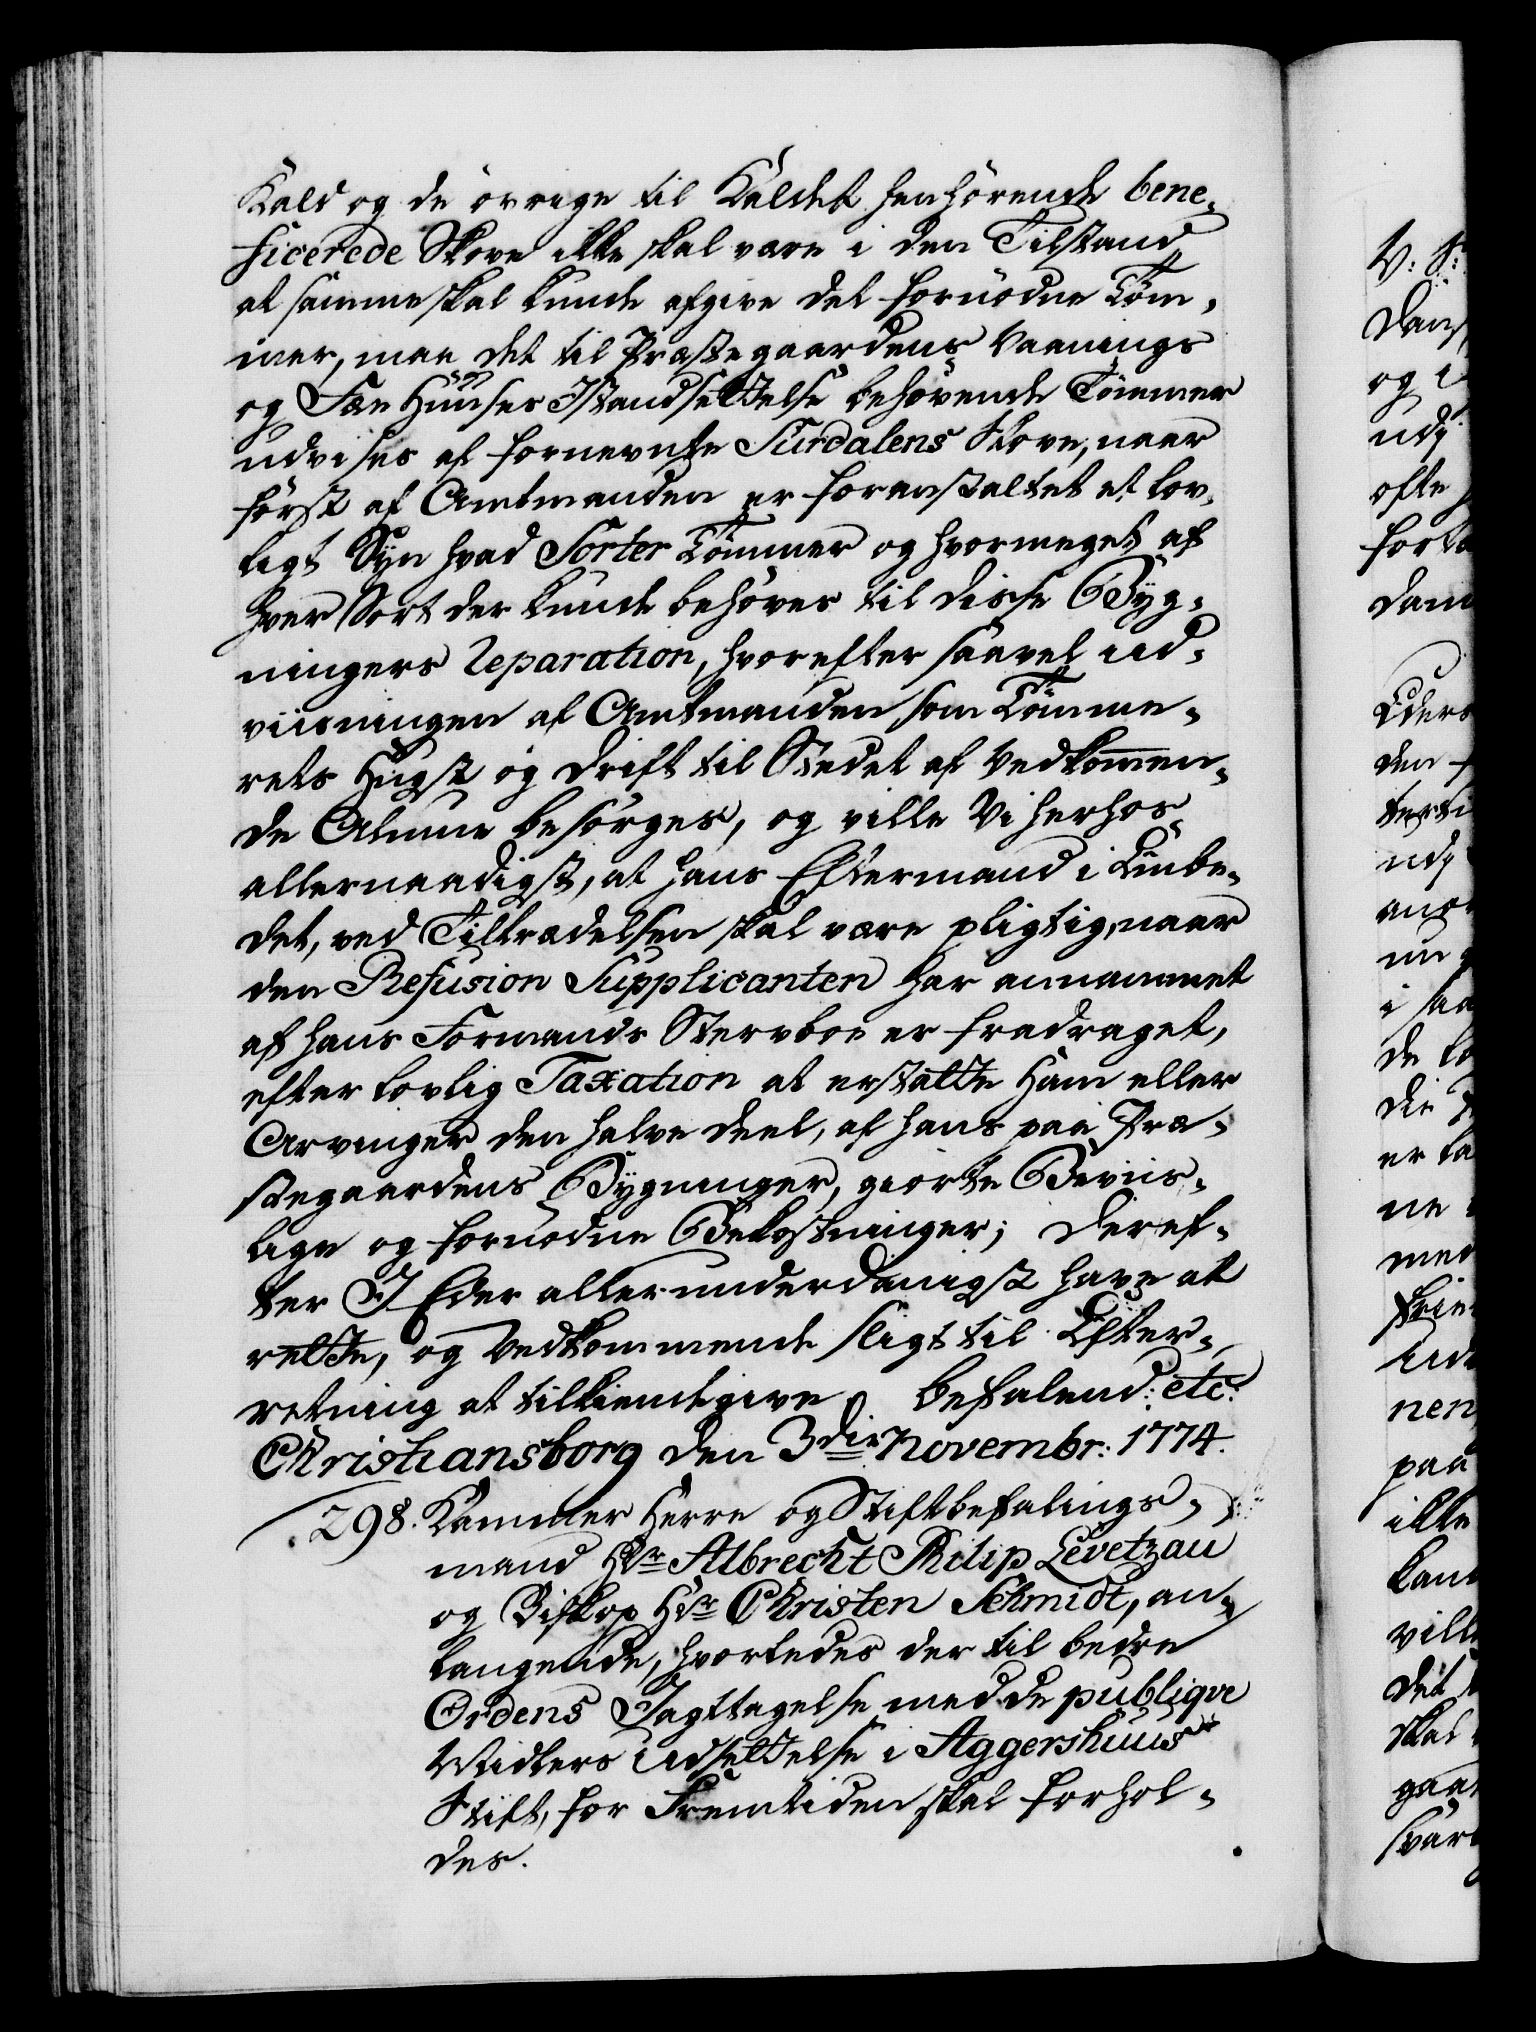 Kald og de övrige til Kaldet henhörende bene-
ficerede Skove ikke skal være i den Tilstand
at samme skal kunde afgive det fornödne Töm-
mer, maa det til Præstegaardens Vaanings
og Fæe Huuses Istandsættelse behövende Tömmer
udvises af fornevnte Surdalens Skove, naar
först af Amtmanden er foranstaltet et lov-
ligt Syn hvad Sorter Tömmer og hvormeget af
hver Sort der kunde behöves til disse Byg-
ningers Reparation, hvorefter saavel ud-
viisningen af Amtmanden, som Tömme-
rets Hugst og Drift til Stedet af Vedkommen-
de Almue besörges, og ville Vi herhos
allernaadigst, at hans Eftermand i Embe-
det, ved Tiltrædelsen skal være pligtig, naar
den Refusion Supplicanten har annammet
af hans Formands Stervboe er fradraget,
efter lovlig Taxation at erstatte Ham eller
Arvinger den halve Deel, af hans paa Præ-
stegaardens Bygninger, giorte Beviis-
lige og fornödne Bekostninger; Deref-
ter I Eder allerunderdanigst have at
rette, og Vedkommende sligt til Efter-
retning at tilkiendegive. Befalend: etc:
Christiansborg den 3die Novembr: 1774.
298. Kammer Herre og Stiftbefalings-
mand Hr Albrecht Philip Levetzau
og Biskop Hr Christen Schmidt, an-
langende, hvorledes der til bedre
Ordens Iagttagelse med de publiqve
Midlers Udsættelse i Aggershuus
Stift, for Fremtiden skal forhol-
des.